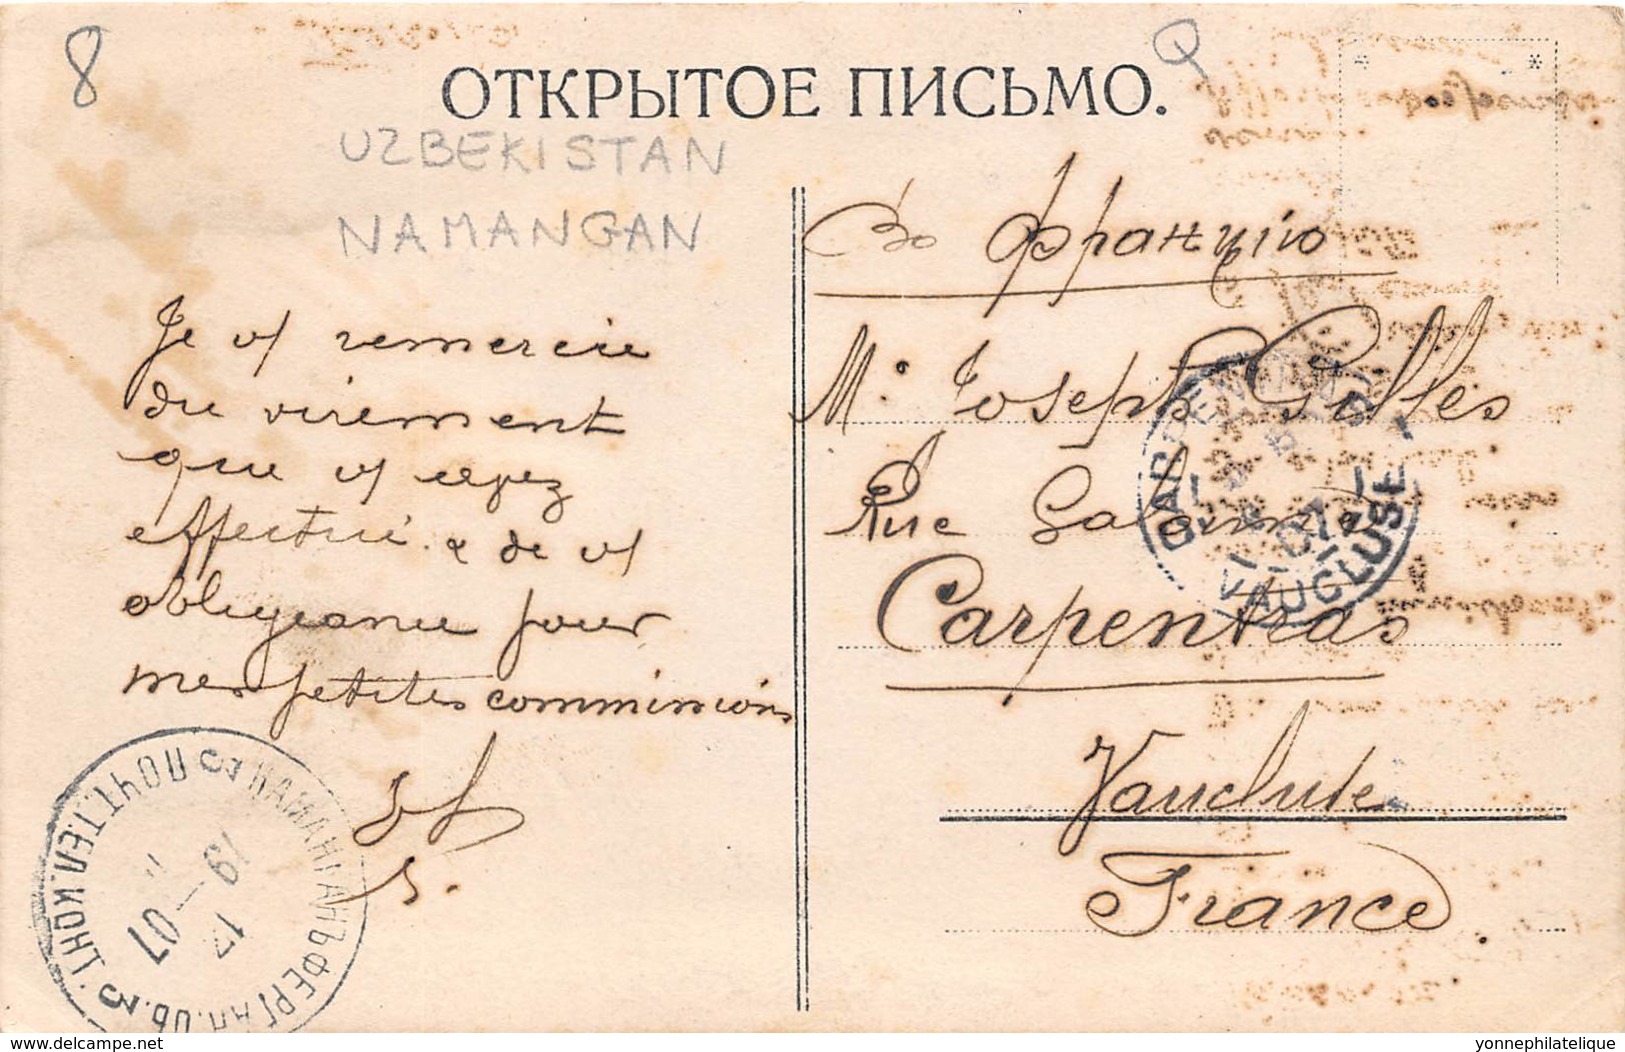 8
ОТКРЫТОЕ ПИСЬМО.
UZBEKISTAN
NAMANGAN
Je vs remercie
du virement
que vs avez
effectué & de vs
obligeance pour
mes petites commissions
Во Францiю
Mr Joseph Gilles
Rue
Carpentras
Vaucluse
France.
CARPENTRAS
VAUCLUSE
НАМАНГАНЪ ФЕРГАН. ОБ.
ПОЧТ. ТЕЛ. КОНТ.
19
07
delcampe.net
yonnephilatelique